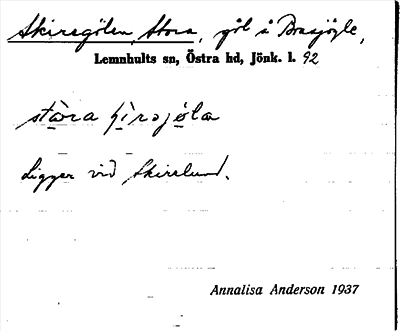 Skiregölen, Stora, göl å Brasjögle,
Lemnhults sn, Östra hd, Jönk. l. 92
stòra ʃìrəjọ́la
Ligger vid Skirelund.
Annalisa Anderson 1937